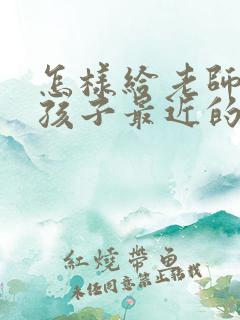 怎樣給老師
孩子最近的
紅燒帶魚
未經同意禁止轉載